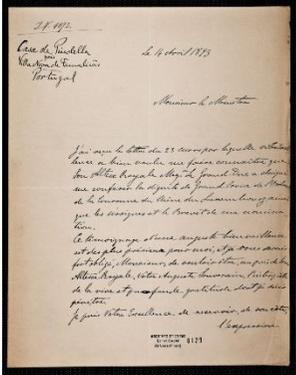 Casa de Pindella
près
Villa Nova de Famalicão
Portugal
Le 14 Avril 1893
Monsieur le Ministre
J'ai reçu la lettre du 23 par laquelle votre
lence a bien voulu me faire connaître que
Son Altesse Royale Mgr le Grand Duc a daigné
me conférer la dignité de Grand Croix de
de la Couronne de Chêne du Luxembourg ainsi
que les insignes et le Brevet de ma nomina
tion.
Ce témoignage d'une auguste bienveillance
est des plus précieux pour moi, et je vous serai
fort obligé, Monsieur, de vouloir être, auprès de Son
Altesse Royale, votre Auguste Souverain, l'interprète
de la vive et profonde gratitude dont je suis
pénétré.
Je prie Votre Excellence de recevoir, de son côté,
l'expression
0123